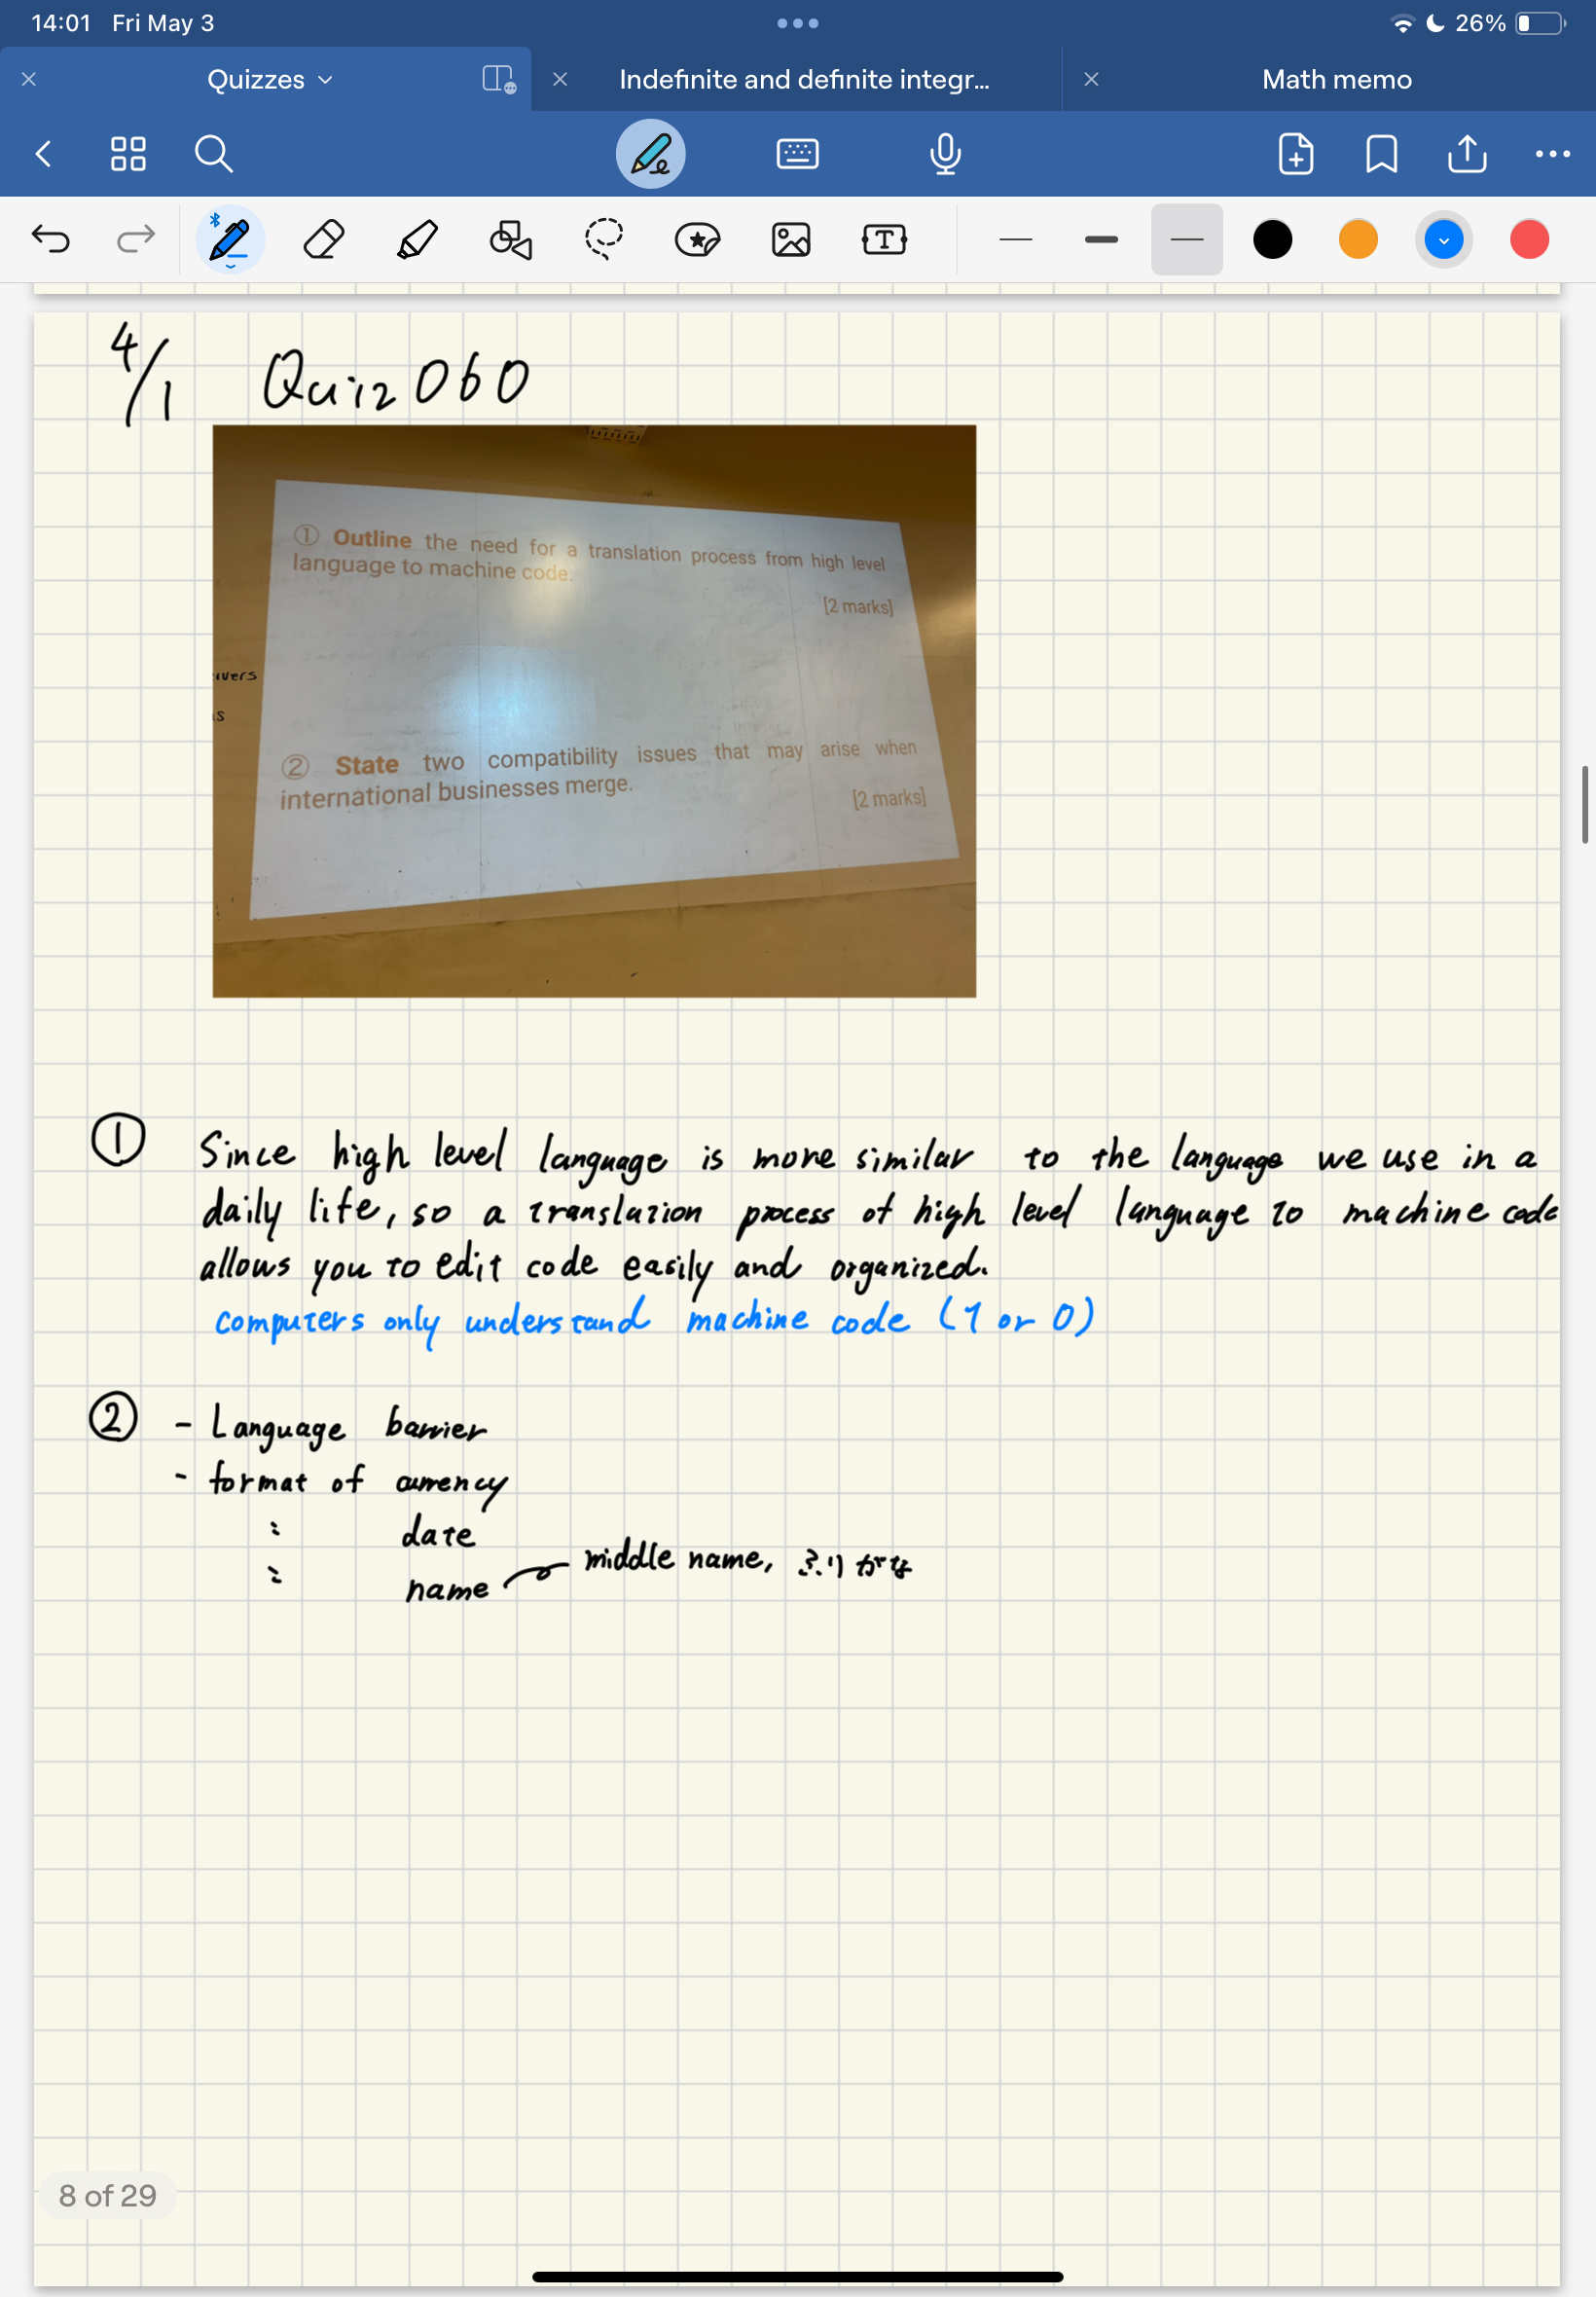 14:01 Fri May 3
26%
Quizzes
Indefinite and definite integr...
Math memo
4/1 Quiz 060
① Outline the need for a translation process from high level
language to machine code.
[2 marks]
② State two compatibility issues that may arise when
international businesses merge.
[2 marks]
① Since high level language is more similar to the language we use in a
daily life, so a translation process of high level language to machine code
allows you to edit code easily and organized.
computers only understand machine code (1 or 0)
② - Language barrier
- format of currency
〃 date
〃 name middle name, ふりがな
8 of 29